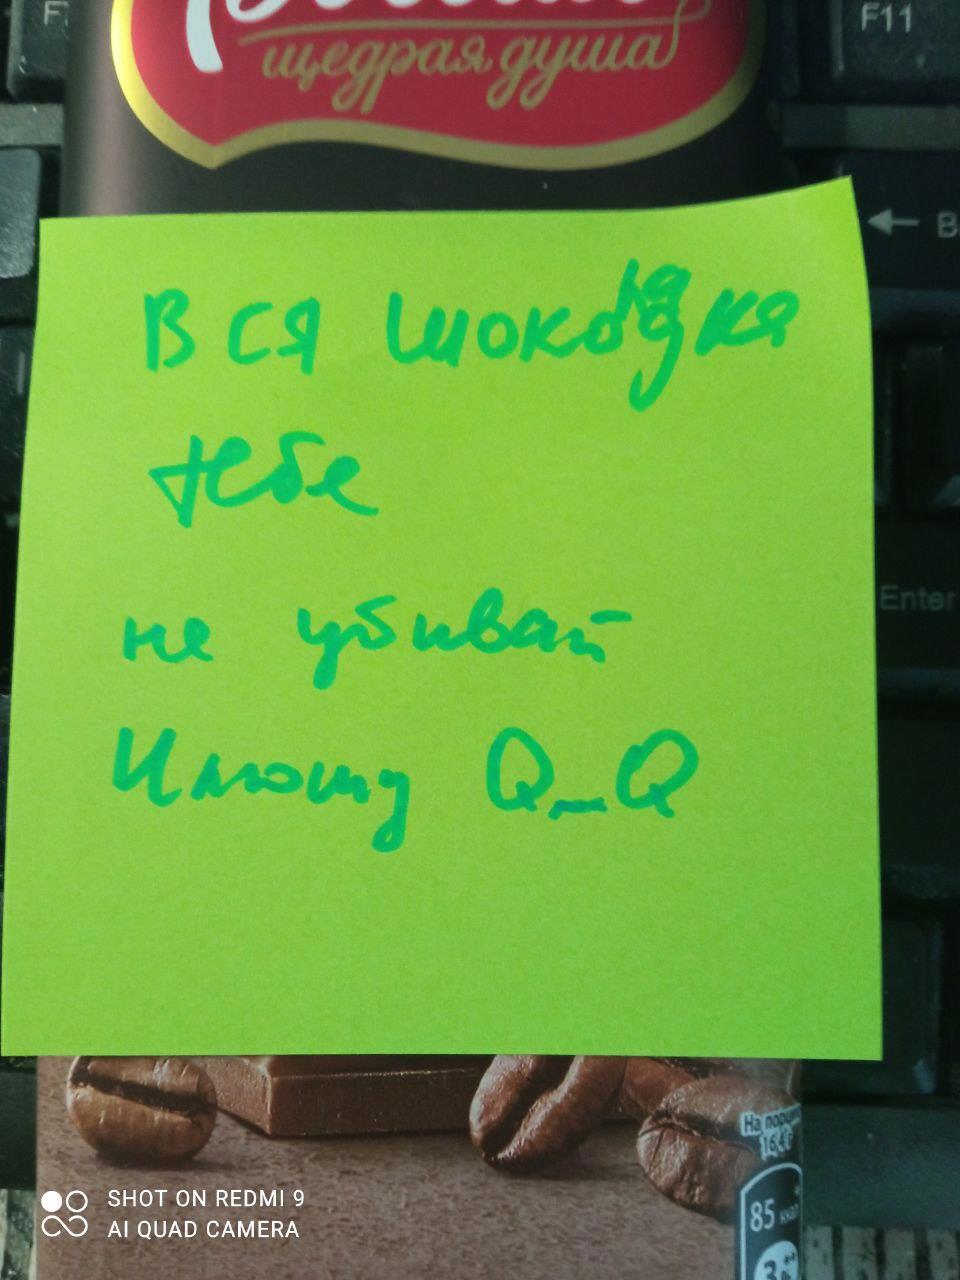 F11
щедрая душа
B
Вся шоколадка
тебе
не убивай
Илюшу Q_Q
Enter
На порцию
16,4 г
85 ккал
SHOT ON REDMI 9
AI QUAD CAMERA